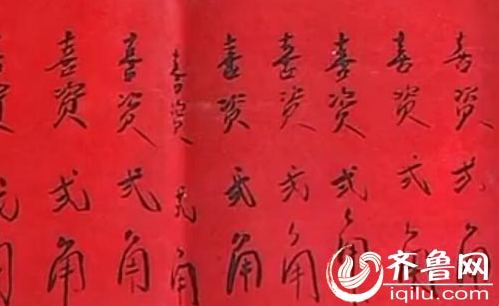 喜资弍角
喜资弍角
喜资弍角
喜资弍角
喜资弍角
喜资弍角
喜资弍角
喜资弍角
齐鲁网
iqilu.com